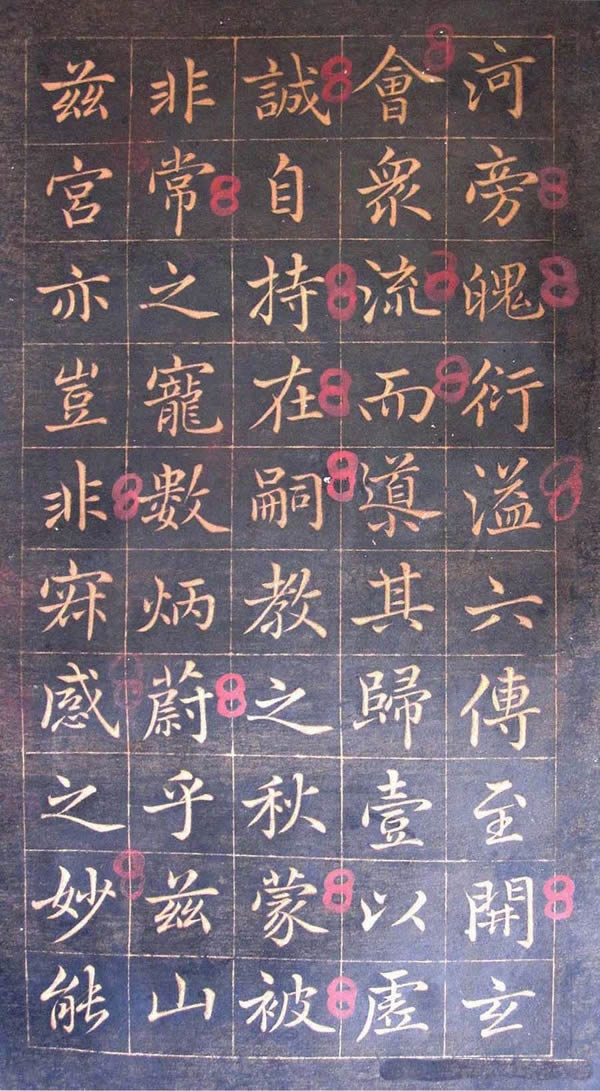 河旁魄衍溢六傳至開玄
會衆流而渠其歸壹以虛
誠自持在嗣教之秋蒙被
非常之寵數炳蔚乎茲山
茲宮亦豈非寂感之妙能